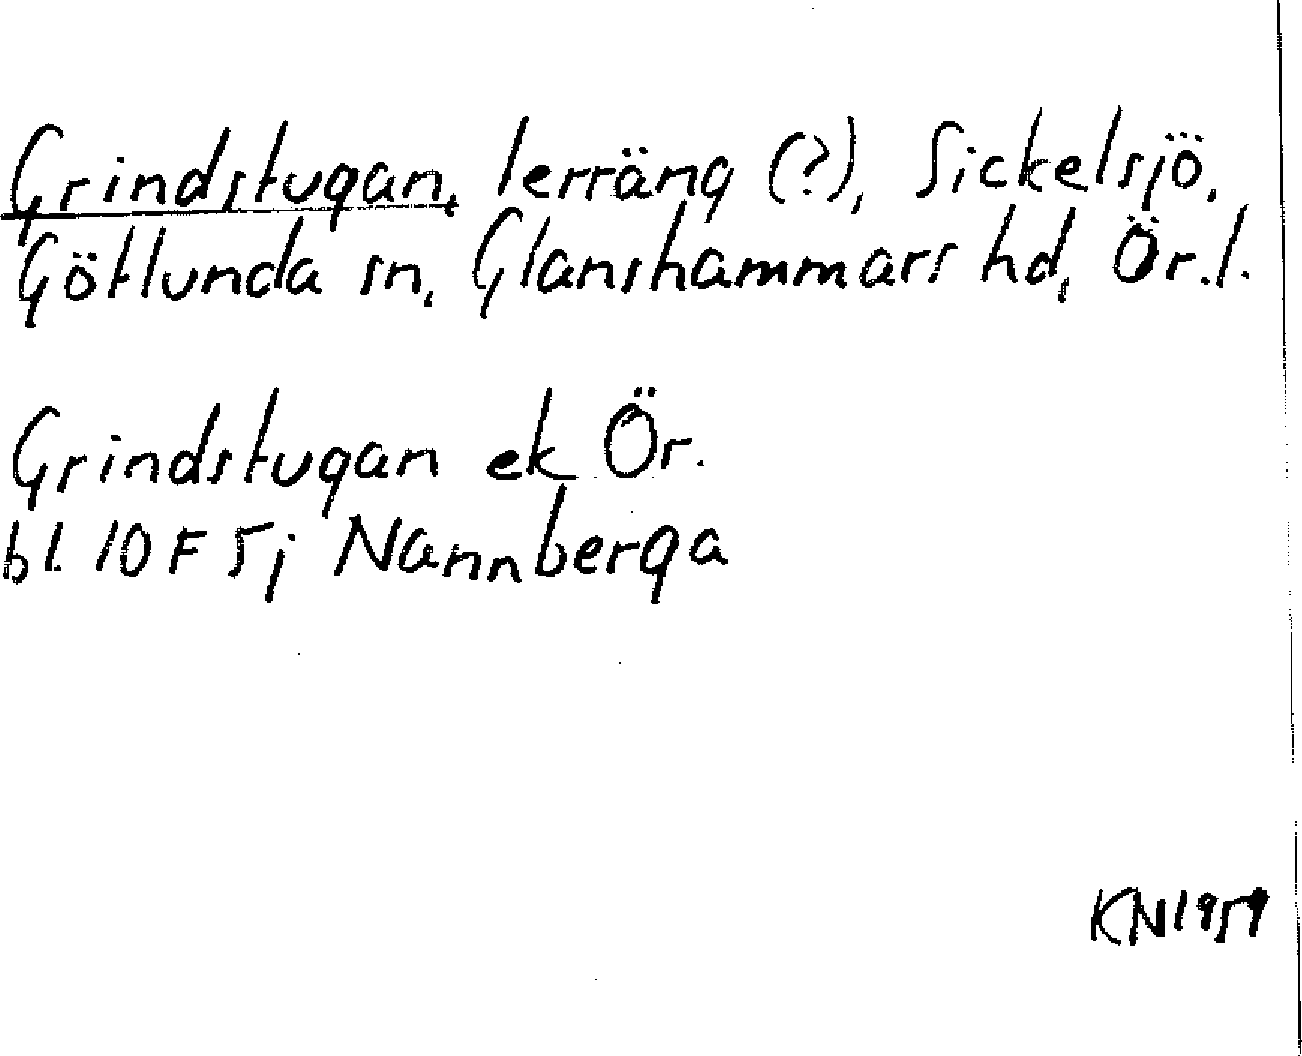 Grindstugan, lerräng (?), Sickelsjö,
Götlunda sn, Glanshammars hd, Ör.l.
Grindstugan ek Ör.
bl. 10F 5j Nannberga
KN1959